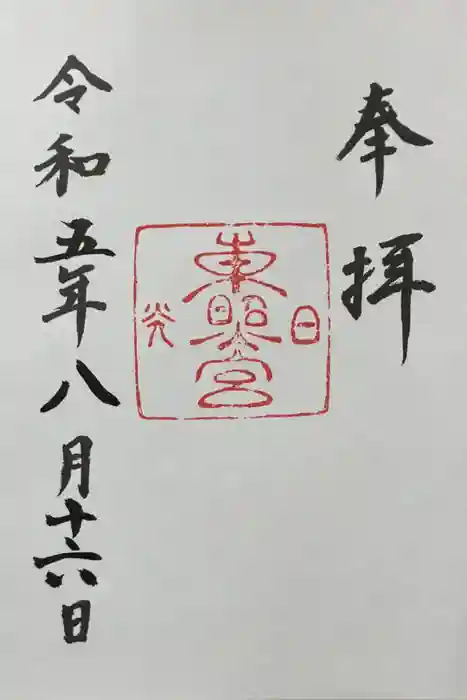 奉拝
日光
東照宮
令和五年八月十六日